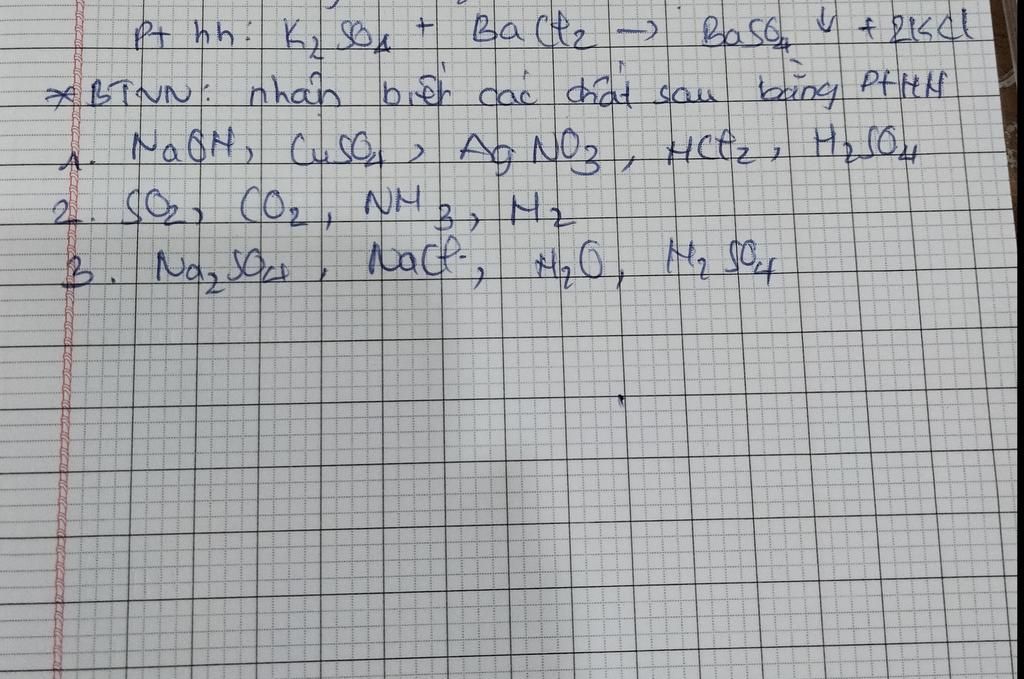 Pt hh: K₂SO₄ + BaCl₂ → BaSO₄ ↓ + 2KCl
* BTVN: nhận biết các chất sau bằng PTHH
1. NaOH, CuSO₄, AgNO₃, HCl₂, H₂SO₄
2. SO₂, CO₂, NH₃, H₂
3. Na₂SO₄, NaCl, H₂O, H₂SO₄